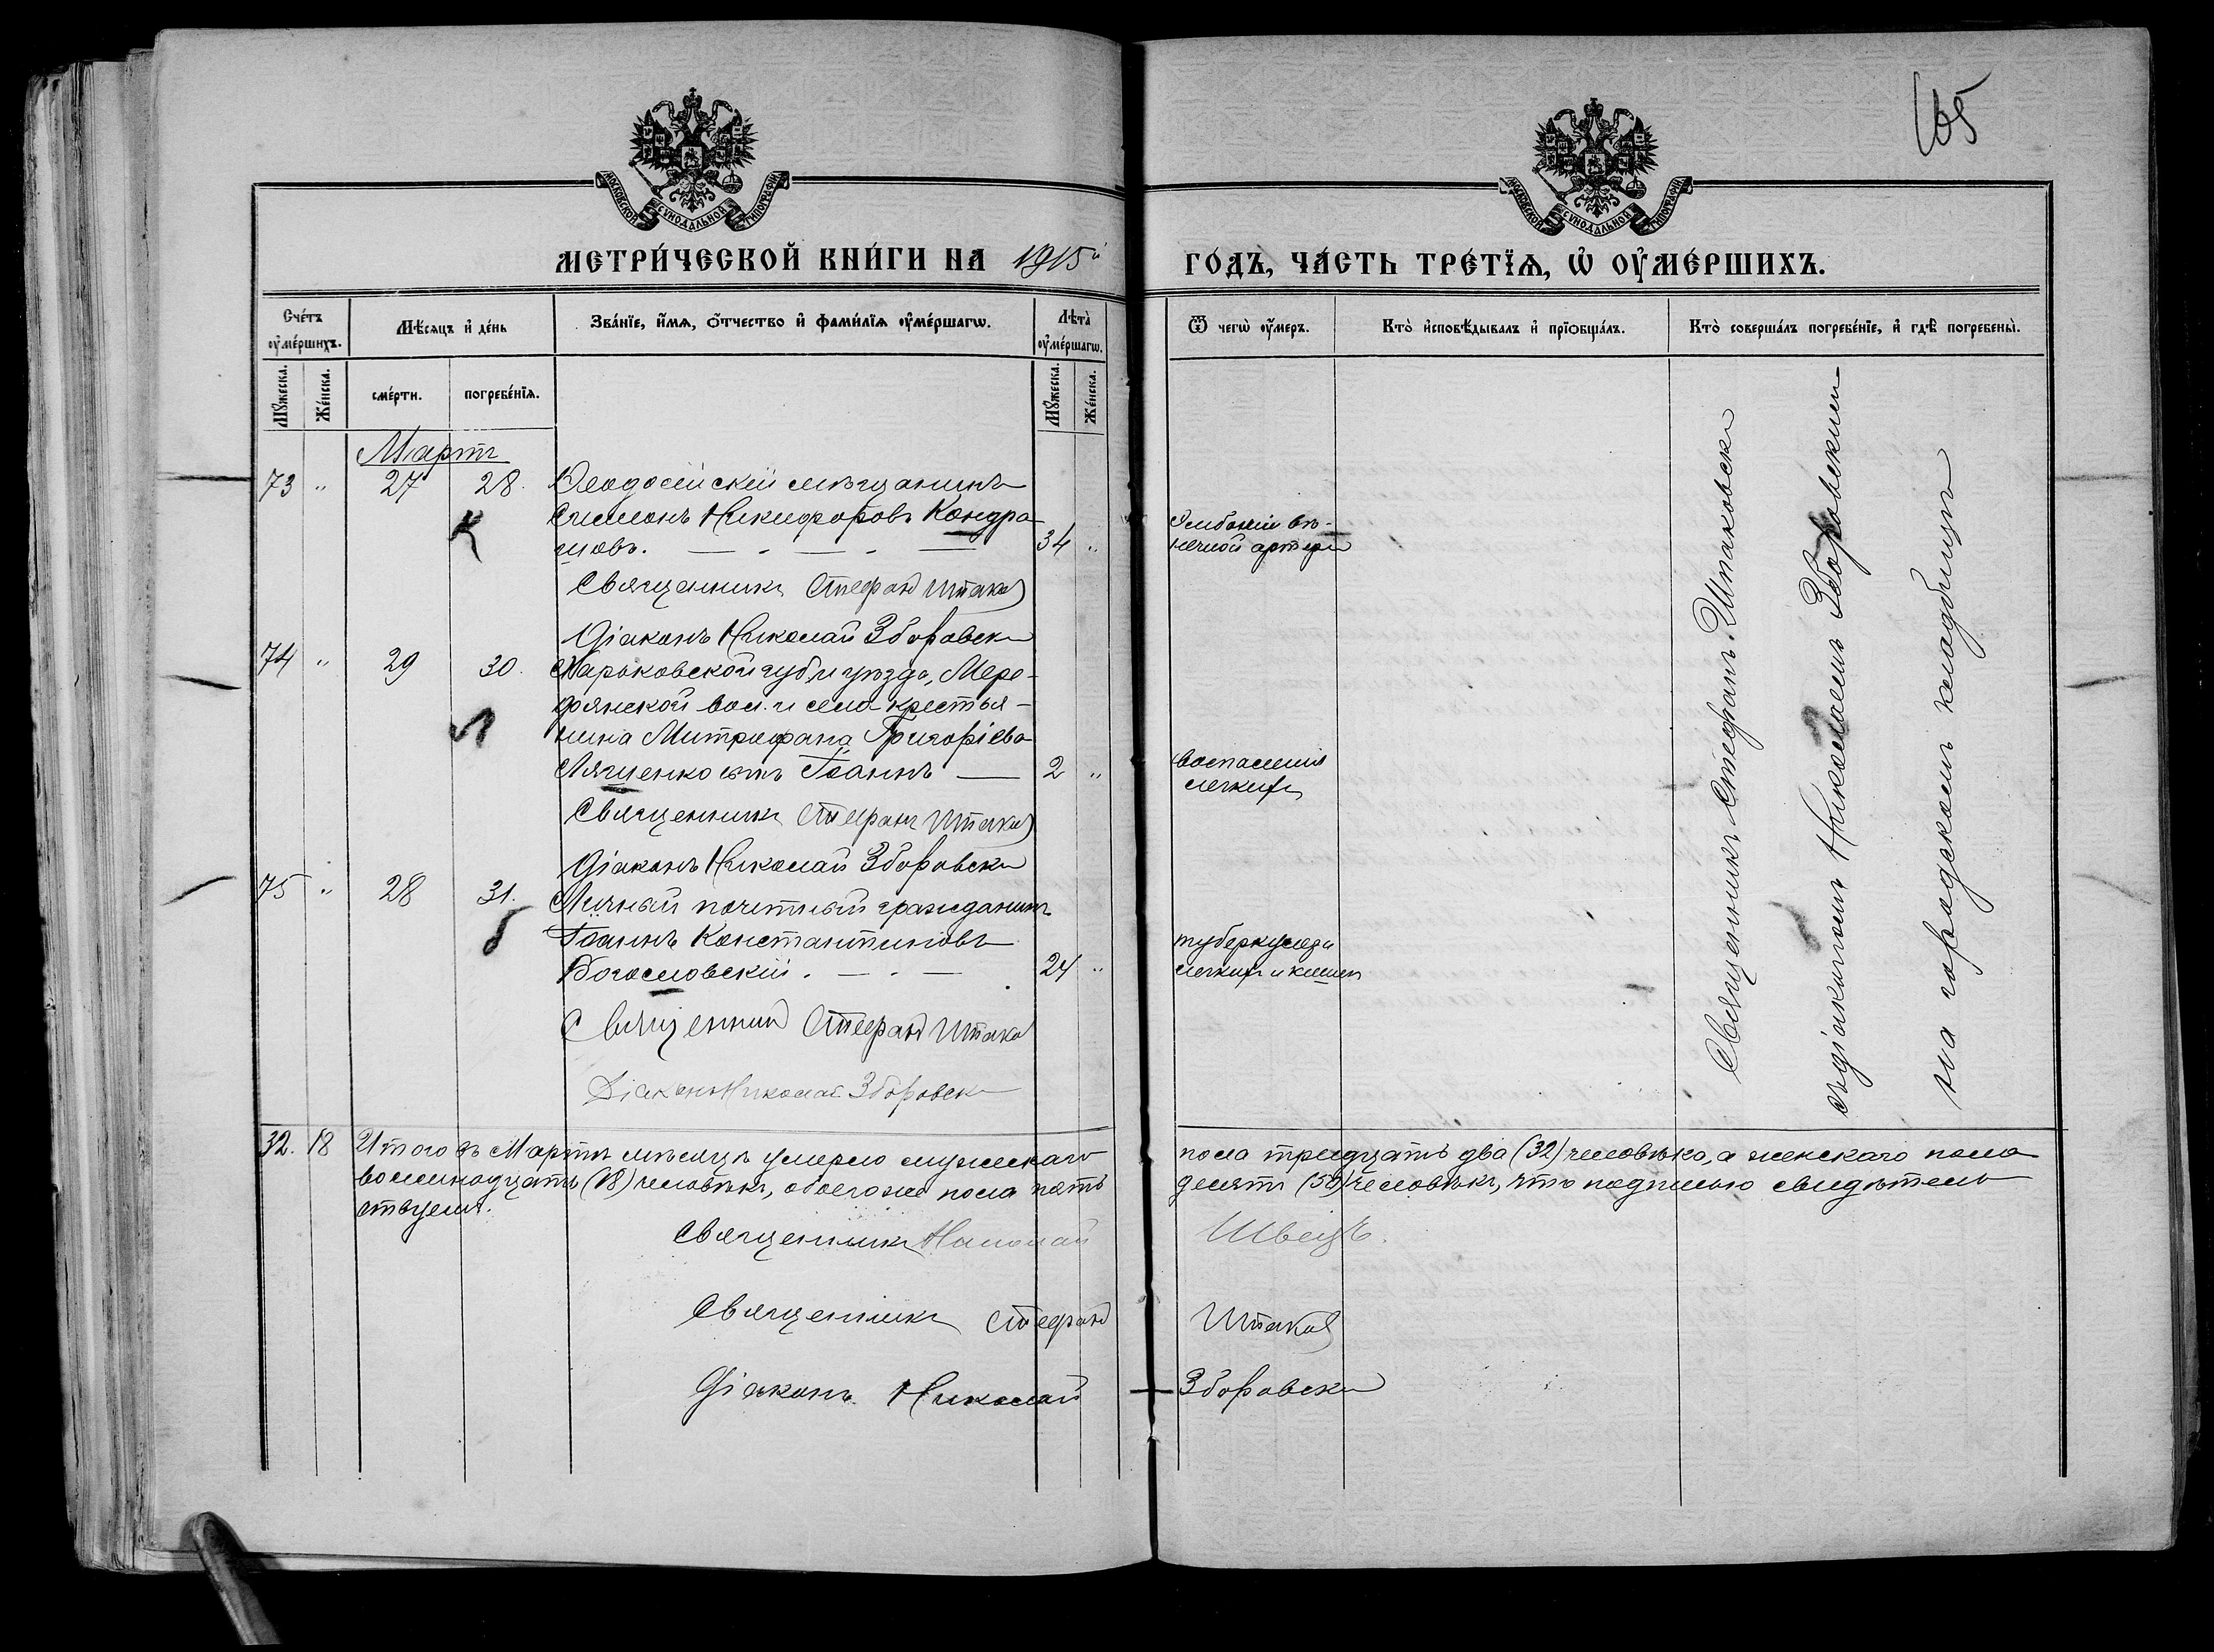 165
МОСКОВСКОЙ СУНОДАЛЬНОЙ ТИПОГРАФІИ
МОСКОВСКОЙ СУНОДАЛЬНОЙ ТИПОГРАФІИ
МЕТРИ́ЧЕСКОЙ КНИ́ГИ НА 1915й ГО́ДЪ, ЧА́СТЬ ТРЕ́ТЇѦ, Ѡ҆ ОУ҆МЕ́РШИХЪ.
Сче́тъ оу҆ме́ршихъ.
Мѣ́сяцъ и҆ де́нь
Зва́нїе, и҆́мѧ, ѻ҆́тчество и҆ фами́лїѧ оу҆ме́ршагѡ.
Лѣта̀ оу҆ме́ршагѡ.
Ѿ чегѡ̀ оу҆́меръ.
Кто̀ и҆сповѣ́дывалъ и҆ прїѻбща́лъ.
Кто̀ соверша́лъ погребе́нїе, и҆ гдѣ̀ погребены̀.
Мꙋ́жеска. Же́нска.
сме́рти. погребе́нїѧ.
Мꙋ́жеска. Же́нска.
Мартъ
73 " 27 28. Ѳеодосійскій мѣщанинъ
Симеонъ Никифоровъ Кондра-
шовъ. 34 "
Эмболіи
артеріи
К
Священникъ Стефанъ Шпаков
Діаконъ Николай Зборовски
74 " 29 30. Харьковской губ. и уѣзда, Мере-
фянской вол. и села крестья-
нина Митрофана Григоріева
Лященко сынъ Іоаннъ 2 "
воспаленія
легкихъ
Л
Священникъ Стефанъ Шпаков
Діаконъ Николай Зборовски
75 " 28 31. Личный почетный гражданинъ
Іоаннъ Константиновъ
Богословскій. 24 "
туберкулеза
легкихъ и кишек
Б
Священник Стефан Шпаков
Діаконъ Николай Зборовски
Священникъ Стефанъ Шпаковски
съ діакономъ Николаемъ Зборовскимъ
на городскомъ кладбищѣ
32. 18 Итого въ Мартѣ мѣсяцѣ умерло мужескаго пола тридцать два (32) человѣка, а женскаго пола
восемнадцать (18) человѣкъ, обоего же пола пять десятъ (50) человѣкъ, что подписью свидѣтель
ствуемъ.
Священникъ Николай Швецъ.
Священникъ Стефан Шпаков
Діаконъ Николай Зборовски